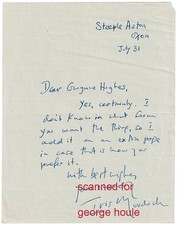 Steeple Aston
Oxon
July 31
Dear Gwynne Hughes,
Yes, certainly. I
don't know in what form
you want the thing, so I
add it on an extra page
in case that is how you
prefer it.
With best wishes
scanned for
Iris Murdoch
george houle